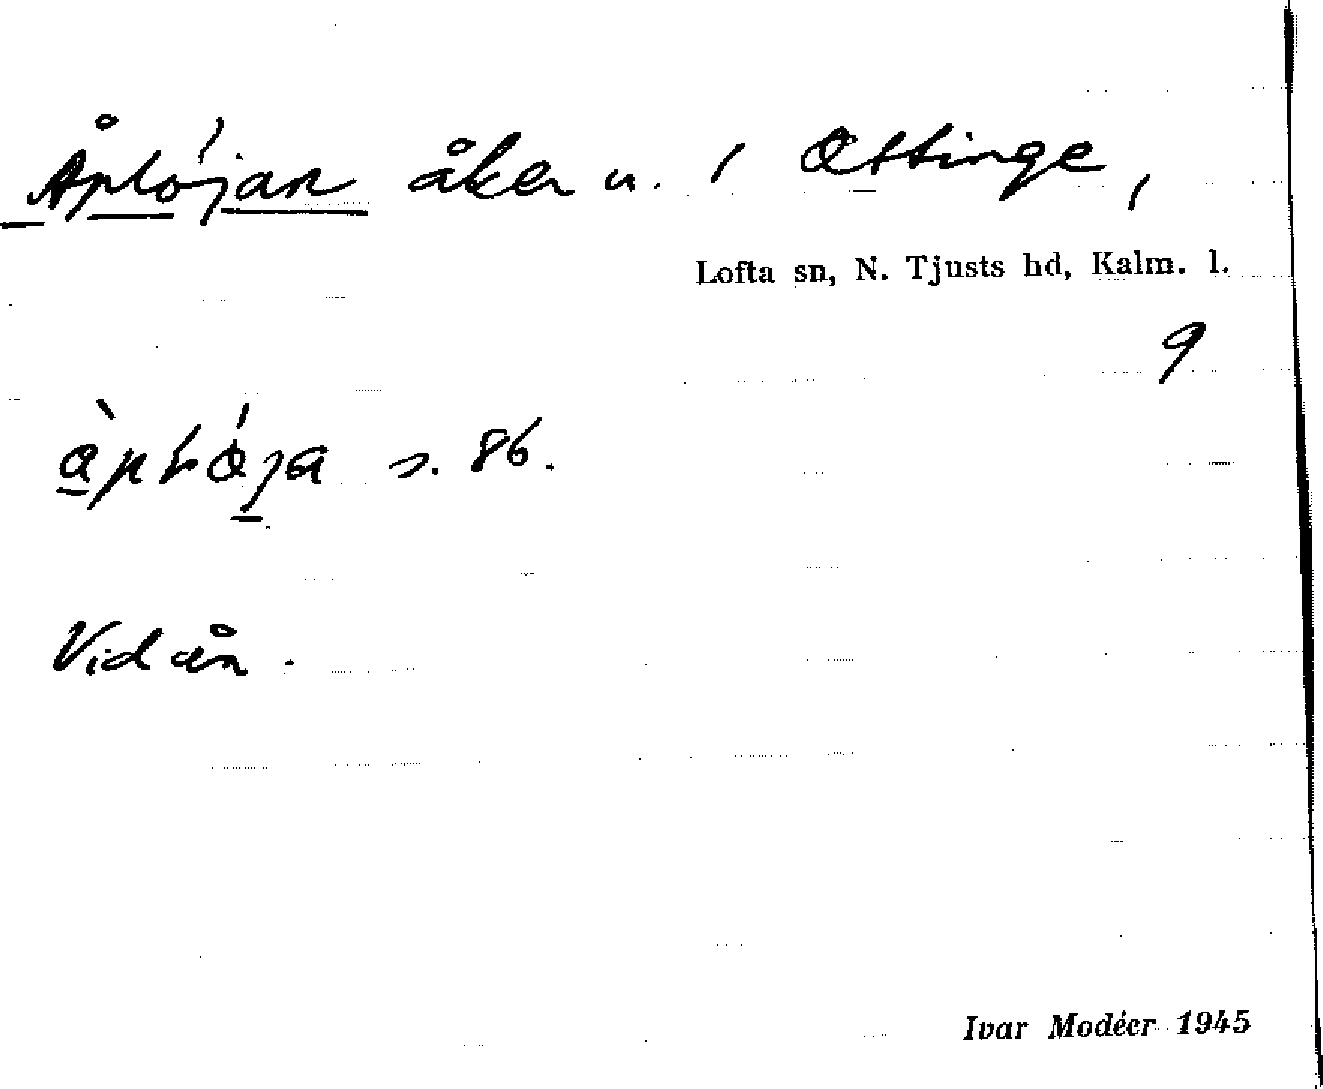 Åplöjan åker u. 1 Ottinge,
Lofta sn, N. Tjusts hd, Kalm. l.
9
s. 86.
Vid ån.
Ivar Modéer 1945